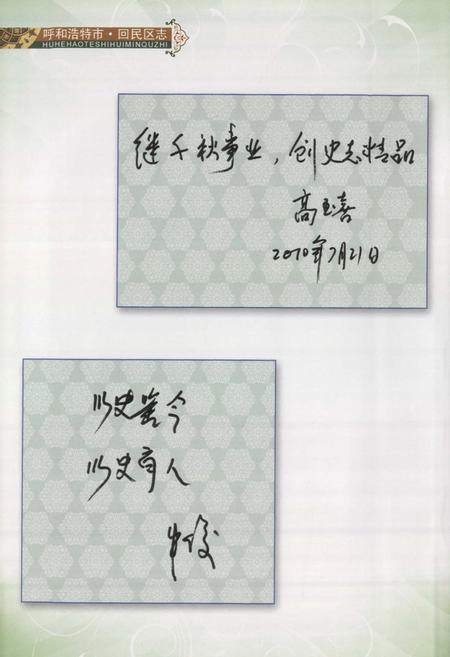 呼和浩特市·回民区志
HUHEHAOTESHIHUIMINQUZHI
继千秋事业，创史志精品
高玉喜
2010年7月21日
以史鉴今
以史育人
牛俊